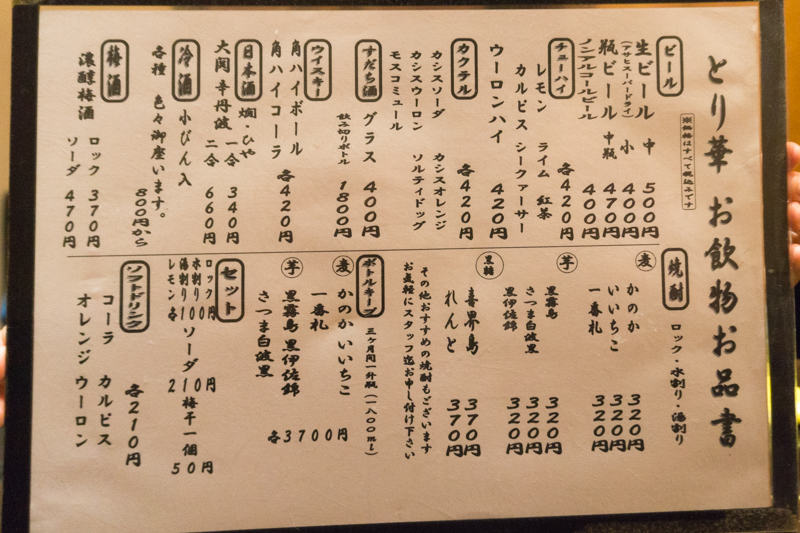 とり華 お飲物お品書
※価格はすべて税込みです
ビール
生ビール 中 500円
(アサヒスーパードライ) 小 400円
瓶ビール 中瓶 470円
ノンアルコールビール 400円
チューハイ 各420円
レモン ライム 紅茶
カルピス シークァーサー
ウーロンハイ 420円
カクテル 各420円
カシスソーダ カシスオレンジ
カシスウーロン ソルティドッグ
モスコミュール
すだち酒 グラス 400円
飲み切りボトル 1800円
ウイスキー
角ハイボール 各420円
角ハイコーラ
日本酒 燗・ひや
大関 辛丹波 一合 340円
二合 660円
冷酒 小びん入
各種 色々御座います。
800円から
梅酒 ロック 370円
濃醇梅酒 ソーダ 470円
焼酎 ロック・水割り・湯割り
麦 かのか 320円
いいちこ 320円
一番札 320円
芋 黒霧島 320円
さつま白波黒 320円
黒伊佐錦 320円
黒糖 喜界島 370円
れんと 370円
その他おすすめの焼酎もございます
お気軽にスタッフ迄お申し付け下さい
ボトルキープ 三ヶ月間一升瓶(一八〇〇ml)
麦 かのか いいちこ
一番札 各3700円
芋 黒霧島 黒伊佐錦
さつま白波黒
セット
ロック 円
水割り 100 ソーダ 210円 梅干一個 50円
湯割り
レモン各
ソフトドリンク 各210円
コーラ カルピス
オレンジ ウーロン